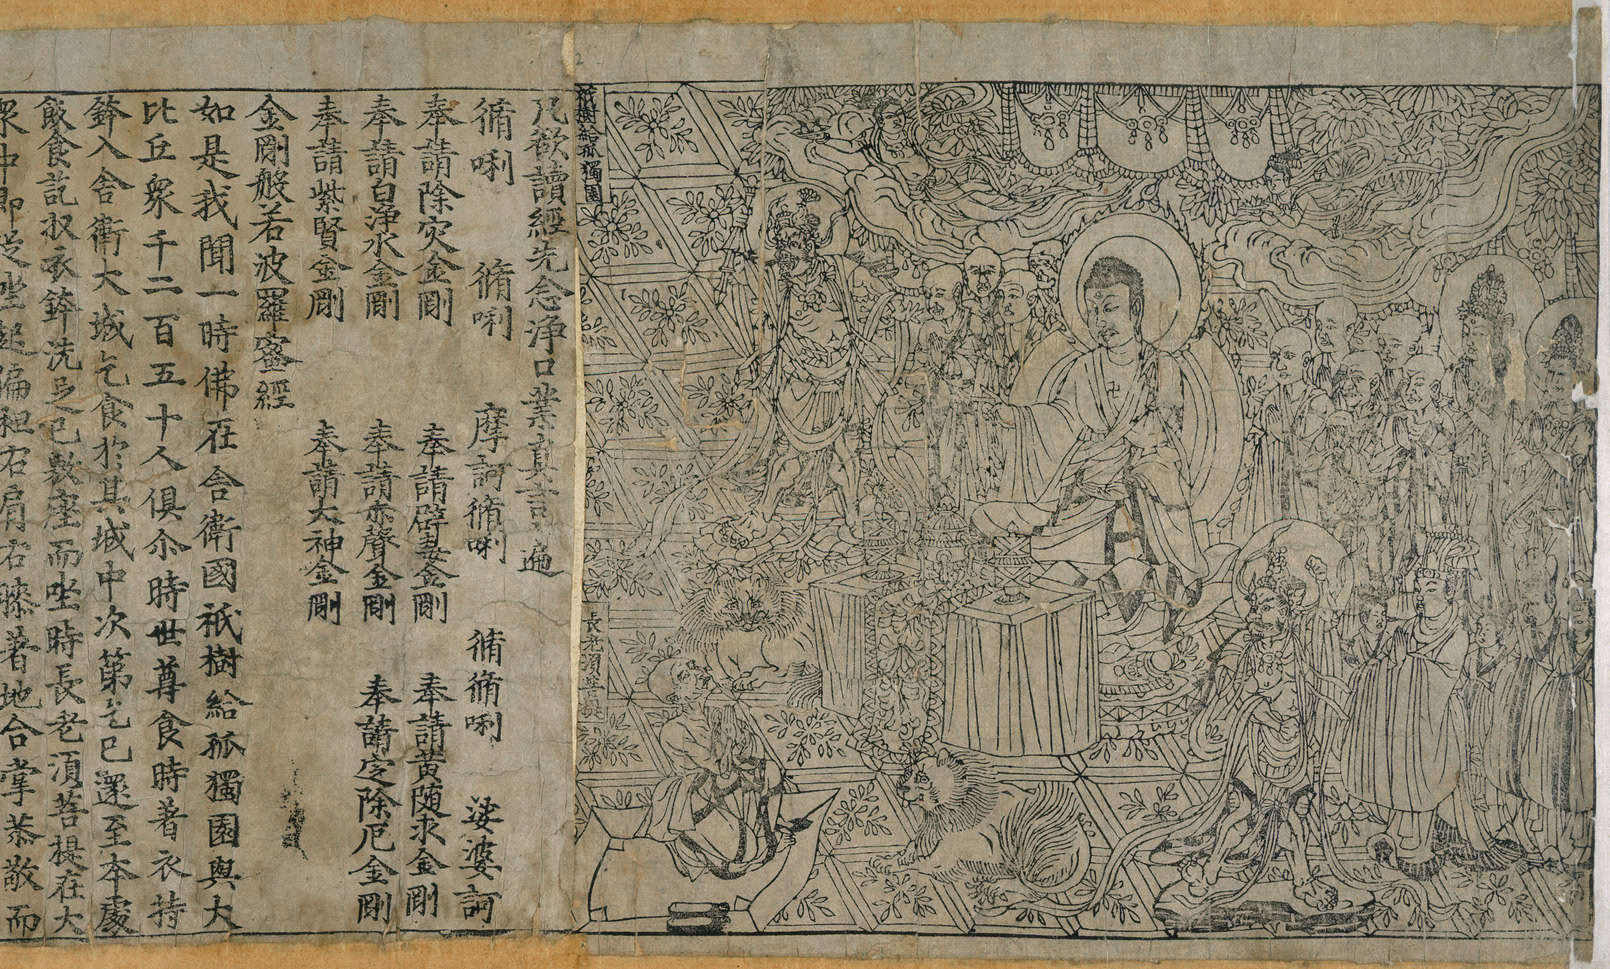 祇樹給孤獨園
長老須菩提
凡欲讀經先念淨口業真言遍
脩唎 脩唎 摩訶脩唎 脩脩唎 娑婆訶
奉請除灾金剛 奉請辟毒金剛 奉請黃随求金剛
奉請白淨水金剛 奉請赤聲金剛 奉請定除厄金剛
奉請紫賢金剛 奉請大神金剛
金剛般若波羅蜜經
如是我聞一時佛在舍衛國祇樹給孤獨園與大
比丘衆千二百五十人俱尒時世尊食時著衣持
鉢入舍衛大城乞食於其城中次第乞已還至本處
飯食訖収衣鉢洗足已敷座而坐時長老湏菩提在大
衆中即從坐起偏袒右肩右膝著地合掌恭敬而